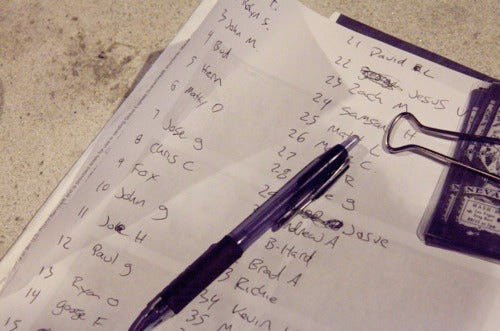 Robyn S.
3 John M.
4 Bud
5 Herm
6 Matty O
7 Jose g
8 Chris C
9 Fox
10 John g
11 Jake H
12 Paul g
13 Ryan O
14 George F
15
21 David EL
22 Jesus V
23 Zach M
24 Samson H
25 Matt L
26 M C.
27 R
28 e g
Josue
Andrew A
B-Hard
3 Brad A
Richie
34 Kevin
35 M
NEVA